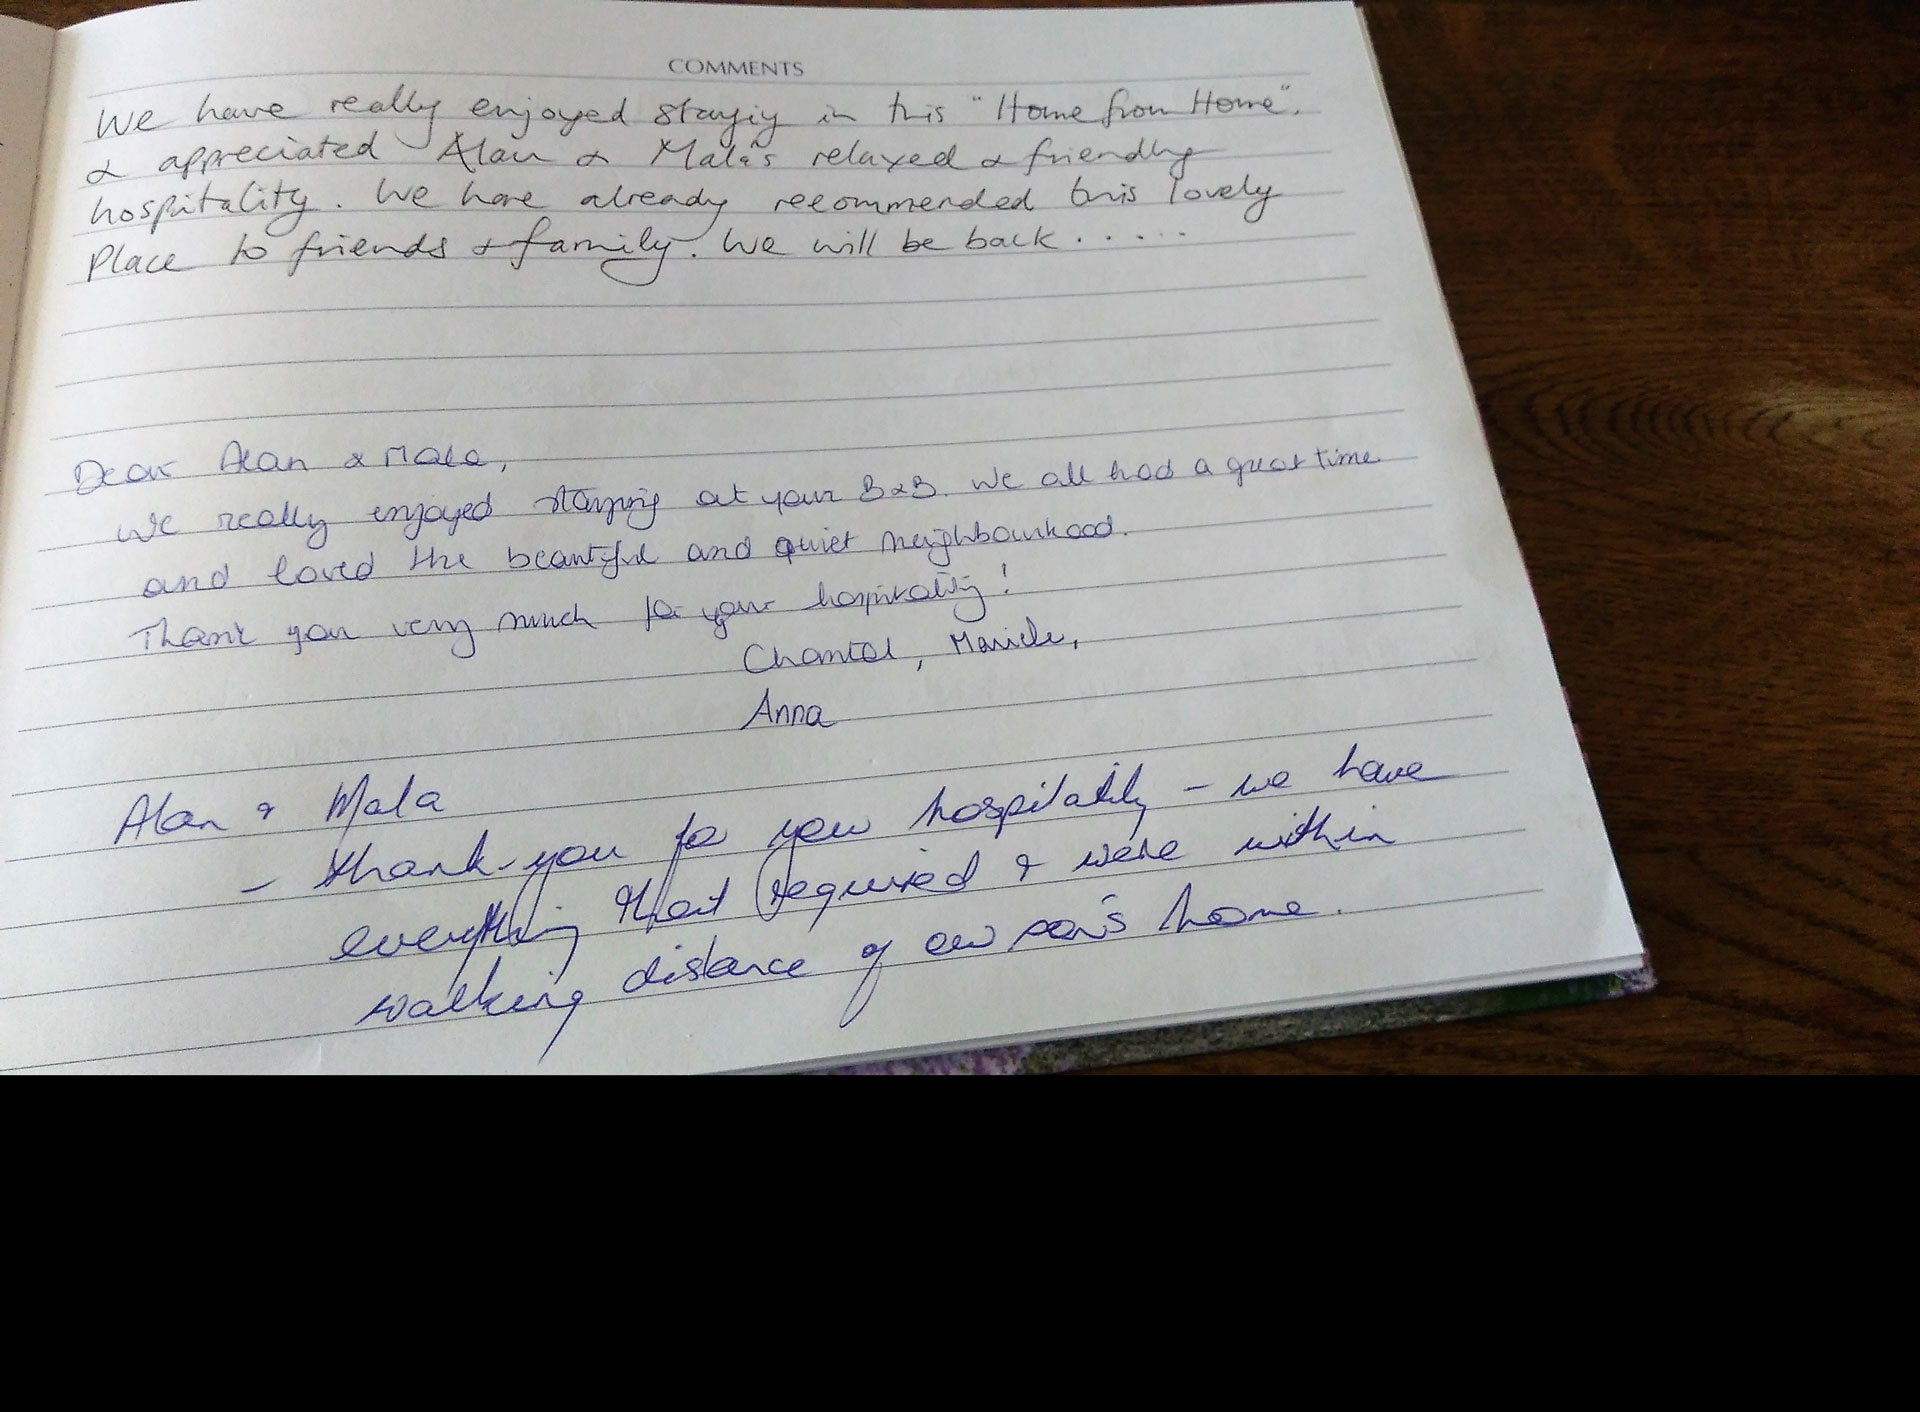 COMMENTS
We have really enjoyed staying in this "Home from Home".
& appreciated Alan & Mala's relaxed & friendly
hospitality. We have already recommended this lovely
Place to friends & family. We will be back . . . . .
Dear Alan & Mala,
We really enjoyed staying at your B&B. We all had a great time
and loved the beautiful and quiet neighbourhood.
Thank you very much for your hospitality!
Chantal,
Anna
Alan & Mala
- thank-you for your hospitality - we have
everything that required & were within
walking distance of our son's home.